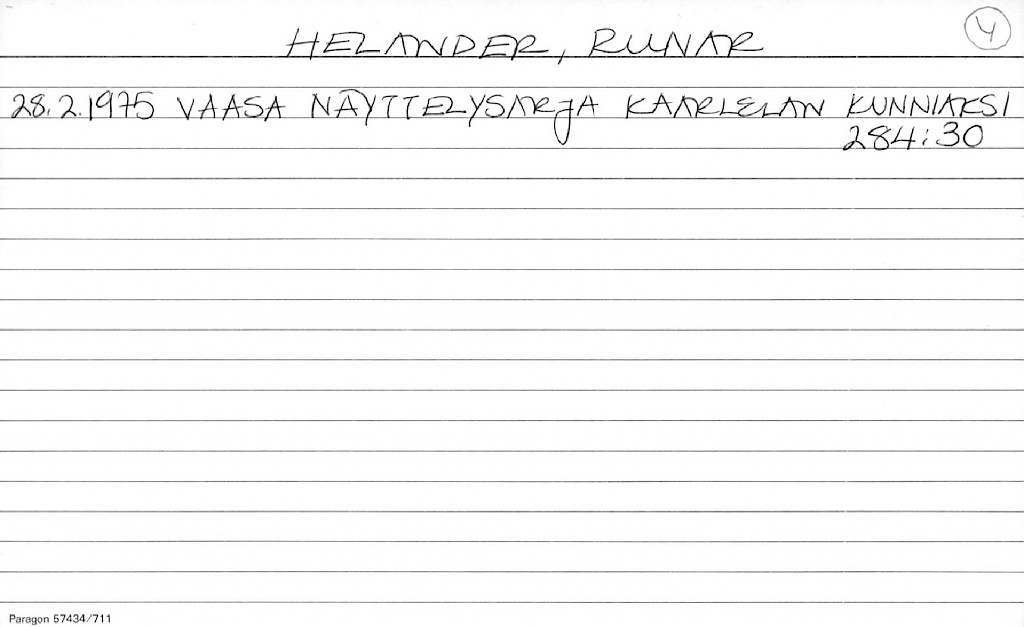 HELANDER, RUNAR
4
28.2.1975 VAASA NÄYTTELYSARJA KAARLELAN KUNNIAKSI
284:30
Paragon 57434/711